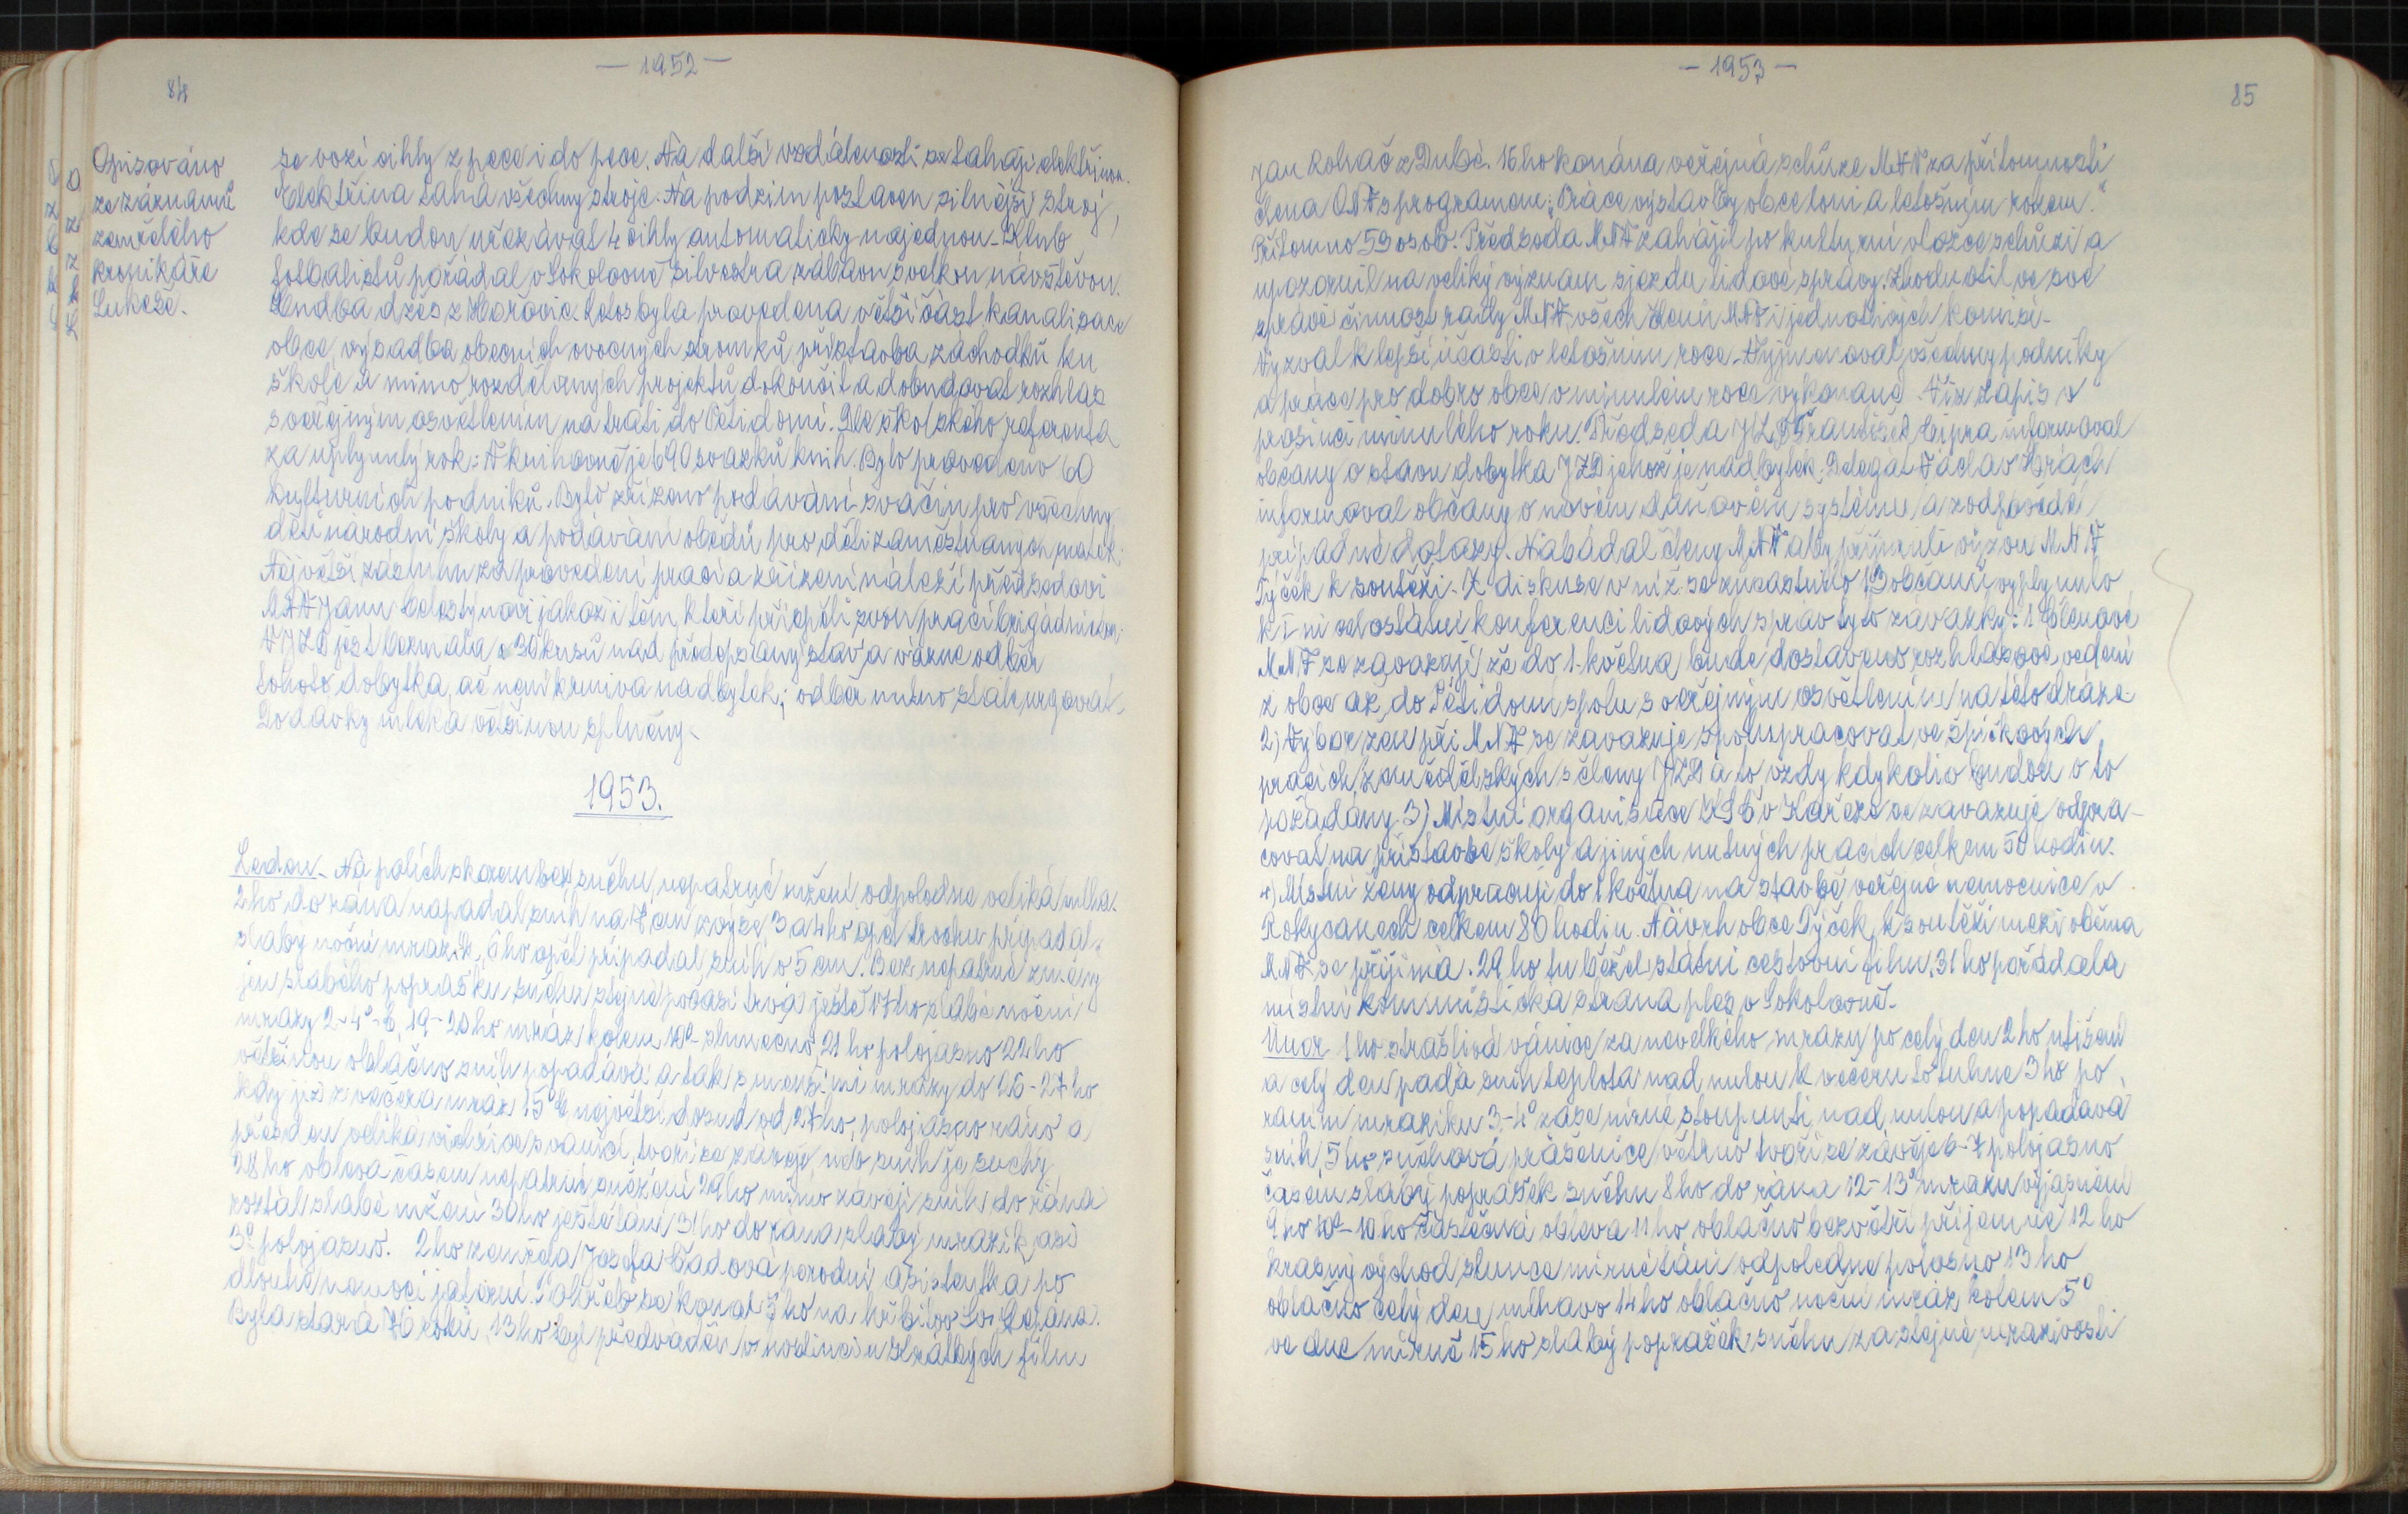 — 1952 —
84
Opisováno
ze záznamů
zemřelého
kronikáře
Lukeše.
se vozí cihly z pece i do pece. Na další vzdálenosti se tahají elektřinou.
Elektřina tahá všechny stroje. Na podzim postaven silnější stroj,
kde se budou uřezávat 4 cihly automaticky najednou. Klub
fotbalistů pořádal v Sokolovně Silvestra zábavou s velkou návštěvou.
Hudba džes z Hořovic. Letos byla provedena větší část kanalisace
obce, výsadba obecních ovocných stromků, přístavba záchodků ku
škole a mimo rozdělaných projektů dokončit a dobudovat rozhlas
s veřejným osvětlením na trati do Pětidomí. Dle školského referenta
za uplynulý rok: V knihovně je 690 svazků knih. Bylo provedeno 60
kulturních podniků. Bylo zřízeno podávání svačin pro všechny
děti národní školy a podávání obědů pro děti zaměstnaných matek.
Největší zásluhu za provedení prací a zřízení náleží předsedovi
MNV Janu Celestýnovi jakož i těm, kteří přispěli svou prací brigádnickou.
V JZD jest bezmála o 30 kusů nad předepsaný stav a vázne odběr
tohoto dobytka, ač není krmiva nadbytek; odběr nutno stále urgovat.
Dodávky mléka většinou splněny.
1953.
Leden. Na polích skorem bez sněhu, nepatrné mžení, odpoledne veliká mlha.
2ho do rána napadal sníh na 7 cm výše 3 a 4ho opět trochu připadal,
slabý noční mrazík, 6ho opět připadal sníh o 5 cm. Bez nepatrné změny
jen slabého poprašku sněhu stejné počasí trvá ještě 17ho slabé noční
mrazy 2-4°-6, 19-20ho mráz kolem 10° slunečno, 21ho polojasno 22ho
většinou oblačno sníh popadává a tak s menšími mrazy do 26-27ho
kdy již z večera mráz 15°C největší dosud od 27ho, polojasno ráno a
přes den veliká vichřice s vánicí, tvoří se závěje, neb sníh je suchý.
28ho obleva časem nepatrné sněžení 29ho mimo závějí sníh do rána
roztál slabé mžení 30ho ještě tání 31ho do rána slabý mrazík asi
3° polojasno. 2ho zemřela Josefa Čadová porodní asistentka po
dlouhé nemoci jaterní. Pohřeb se konal 5ho na hřbitov Sv. Štěpána.
Byla stará 76 roků. 13ho byl předváděn v hostinci u Krátkých film
— 1953 —
85
Jan Roháč z Dubé. 16ho konána veřejná schůze MNV za přítomnosti
člena ONV s programem: „Práce výstavby obce loni a letošním rokem.“
Přítomno 59 osob. Předseda MNV zahájil po kulturní vložce schůzi a
upozornil na veliký význam sjezdu lidové správy. Zhodnotil ve své
zprávě činnost rady MNV, všech členů MNV i jednotlivých komisí.
Vyzval k lepší účasti v letošním roce. Vyjmenoval všechny podniky
a práce pro dobro obce v minulém roce vykonané. Viz zápis v
prosinci minulého roku. Předseda JZD František Cipra informoval
občany o stavu dobytka JZD jehož je nadbytek. Delegát Václav Hrách
informoval občany o novém daňovém systému a zodpověděl
případné dotazy. Nabádal členy MNV aby přijmuli výzvu MNV
Týček k soutěži. Z diskuse v níž se zúčastnilo 13 občanů vyplynulo
k I ní celostátní konferenci lidových správ tyto závazky: 1 Členové
MNV se zavazují že do 1. května bude dostaveno rozhlasové vedení
z obce až do Pětidomí spolu s veřejným osvětlením na této dráze
2) Výbor žen při MNV se zavazuje spolupracovat ve špičkových
pracích zemědělských s členy JZD a to vždy kdykoliv budou o to
požádány. 3) Místní organisace KSČ v Kařeze se zavazuje odpra-
covat na přístavbě školy a jiných nutných pracích celkem 50 hodin.
4) Místní ženy odpracují do 1 května na stavbě veřejné nemocnice v
Rokycanech celkem 80 hodin. Návrh obce Týček, k soutěži mezi oběma
MNV se přijímá. 29ho tu běžel státní cestovní film, 31ho pořádala
místní komunistická strana ples v Sokolovně.
Únor. 1ho strašlivá vánice za nevelkého mrazu po celý den 2ho utišení
a celý den padá sníh teplota nad nulou k večeru to tuhne 3ho po
ranním mrazíku 3-4° zase mírné stoupnutí nad nulou a popadává
sníh 5ho sněhová prášenice větrno tvoří se závěje 6-7 polojasno
časem slabý poprašek sněhu 8ho do rána 12-13° mrazu vyjasnění
9ho 10°-10ho částečná obleva 11ho oblačno bezvětří příjemně 12ho
krásný východ slunce mírné tání odpoledne polojasno 13ho
oblačno celý den mlhavo 14ho oblačno noční mráz kolem 5°
ve dne mírně 15ho slabý poprašek sněhu za stejné mrazivosti